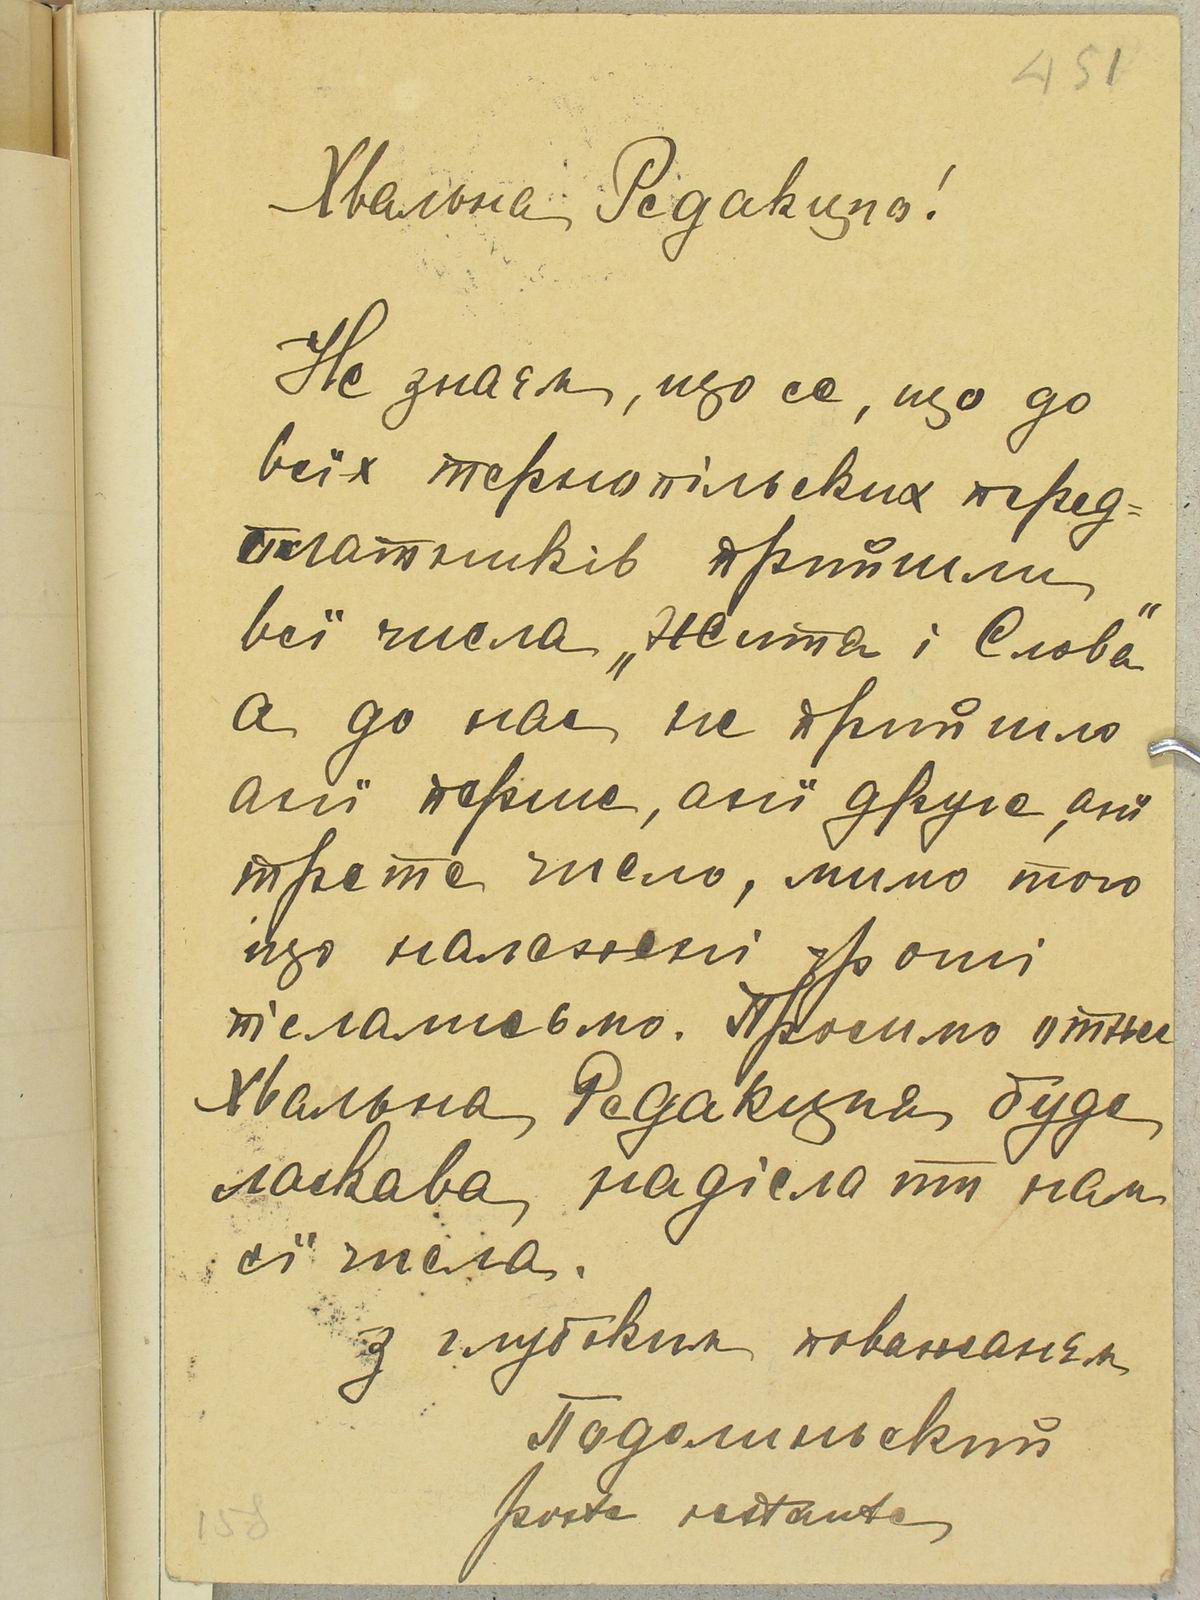 451
Хвальна Редакция!
Не знаєм, що се, що до
всїх тернопільских перед=
платників прийшли
всї числа „Житя і Слова"
а до нас не прийшло
анї перше, анї друге, анї
третє число, мимо того
що належні гроші
післалисьмо. Просимо отже
Хвальна Редакция буде
ласкава надіслати нам
сї числа.
З глубоким поважанєм
Подолиньский
poste restante
158